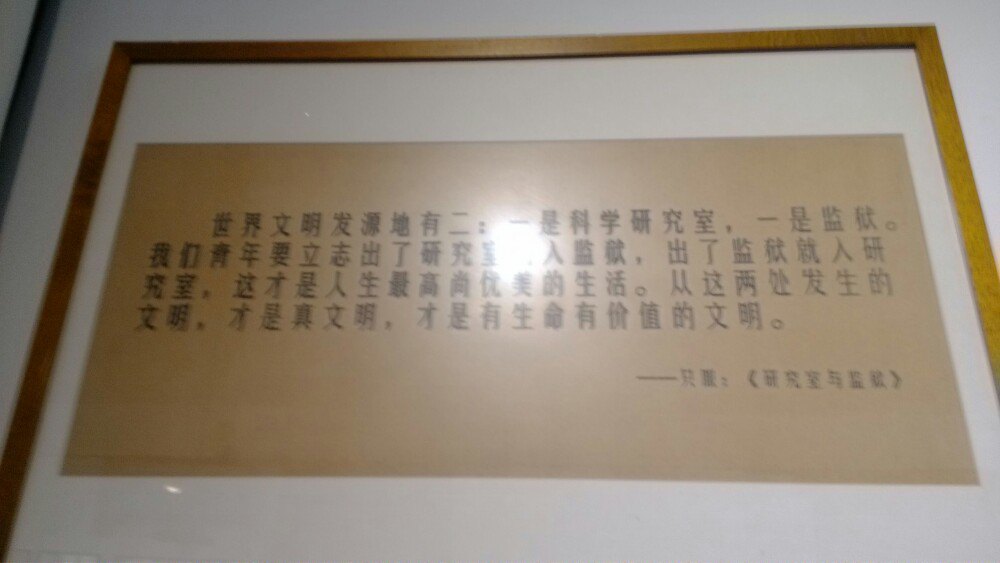 世界文明发源地有二：一是科学研究室，一是监狱。
我们青年要立志出了研究室入监狱，出了监狱就入研
究室，这才是人生最高尚优美的生活。从这两处发生的
文明，才是真文明，才是有生命有价值的文明。
——只眼：《研究室与监狱》